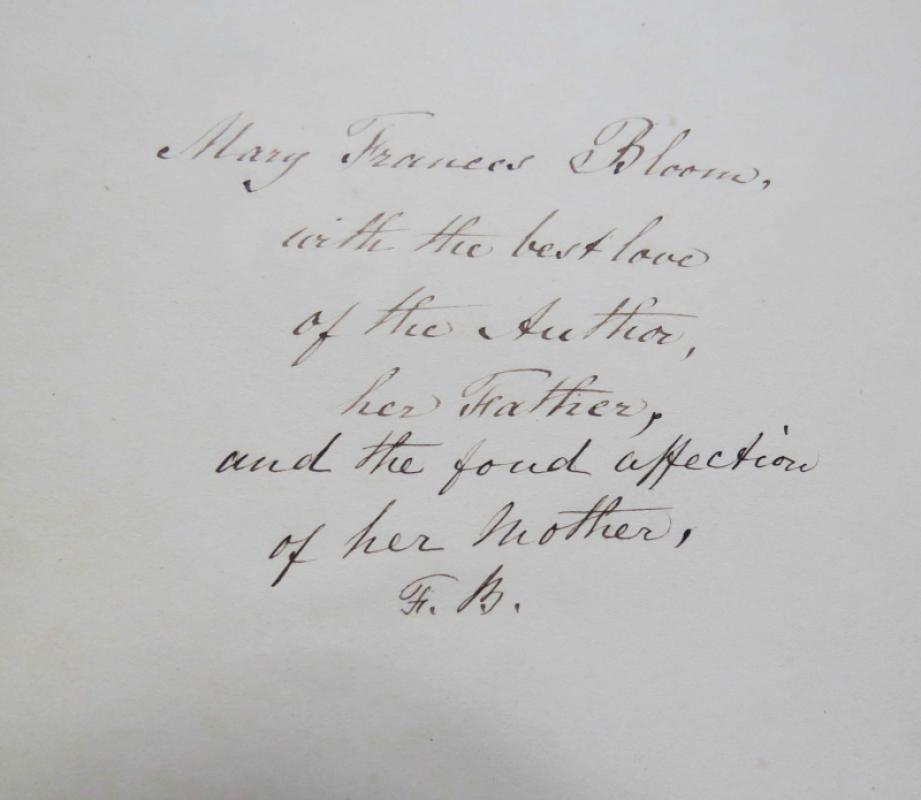 Mary Frances Bloom,
with the best love
of the Author,
her Father,
and the fond affection
of her Mother,
F. B.